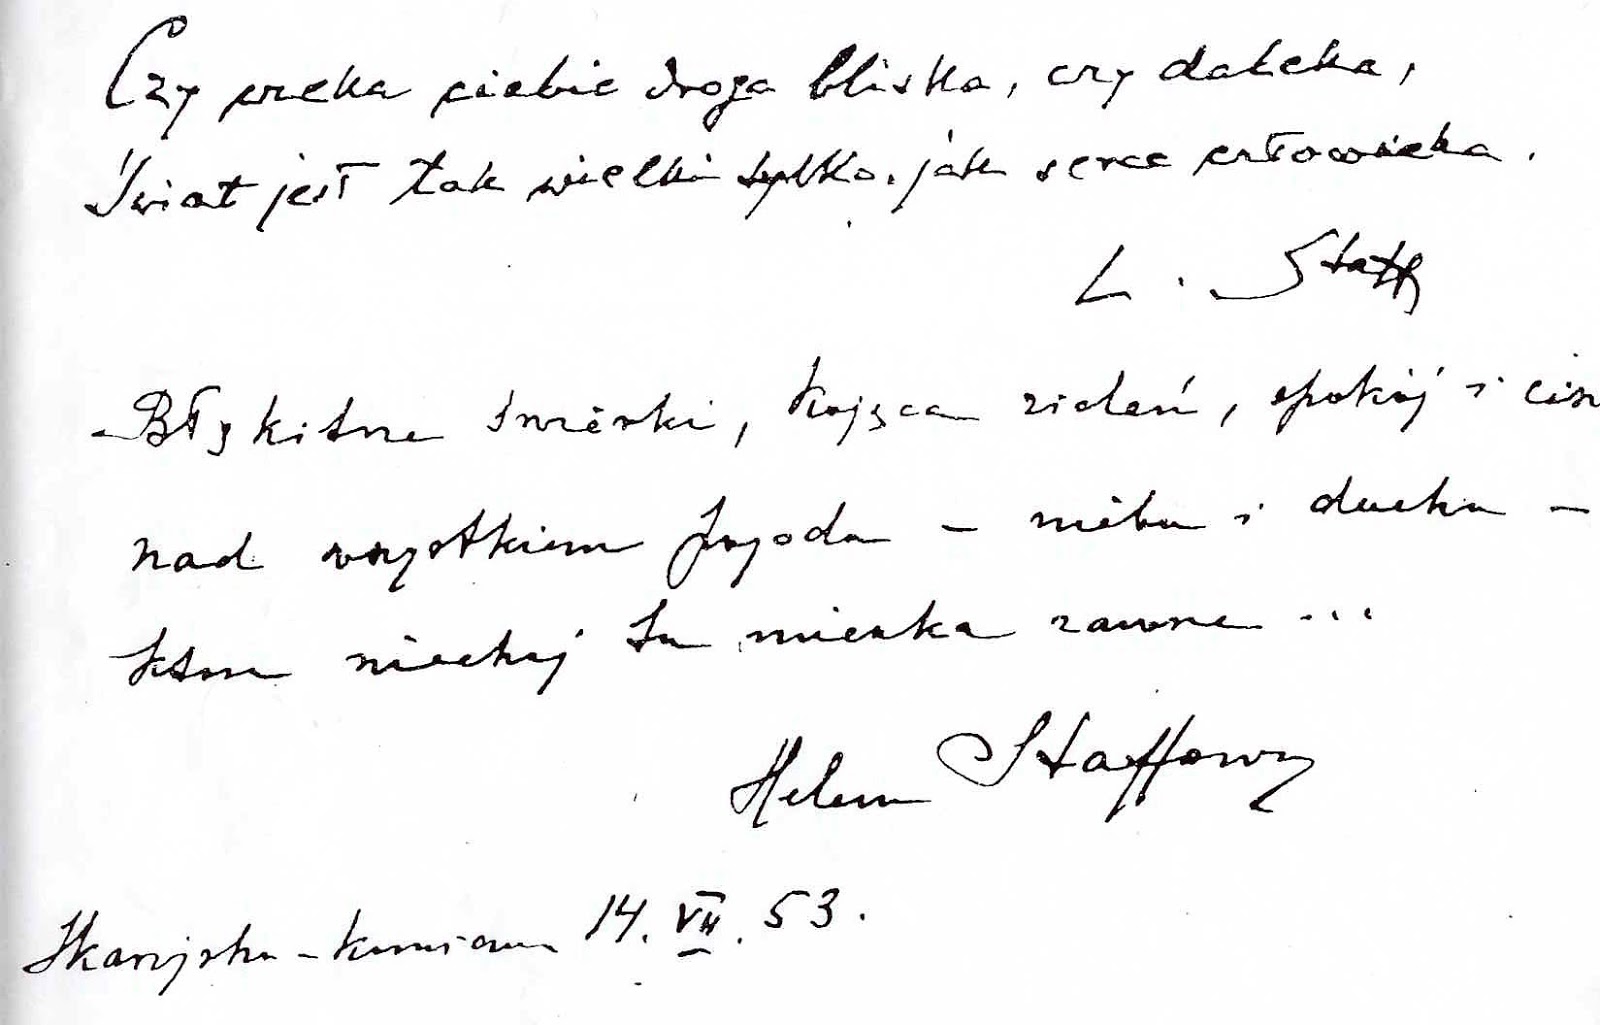 Czy czeka ciebie droga bliska, czy daleka,
Świat jest tak wielki tylko, jak serce człowieka.
L. Staff
Błękitne smreki, kojąca zieleń, spokój i cisz
nad wszystkiem pogoda – nieba i ducha –
która niechaj tu mieszka zawsze...
Helena Staffowa
Skarżysko-Kamienna 14. VII. 53.